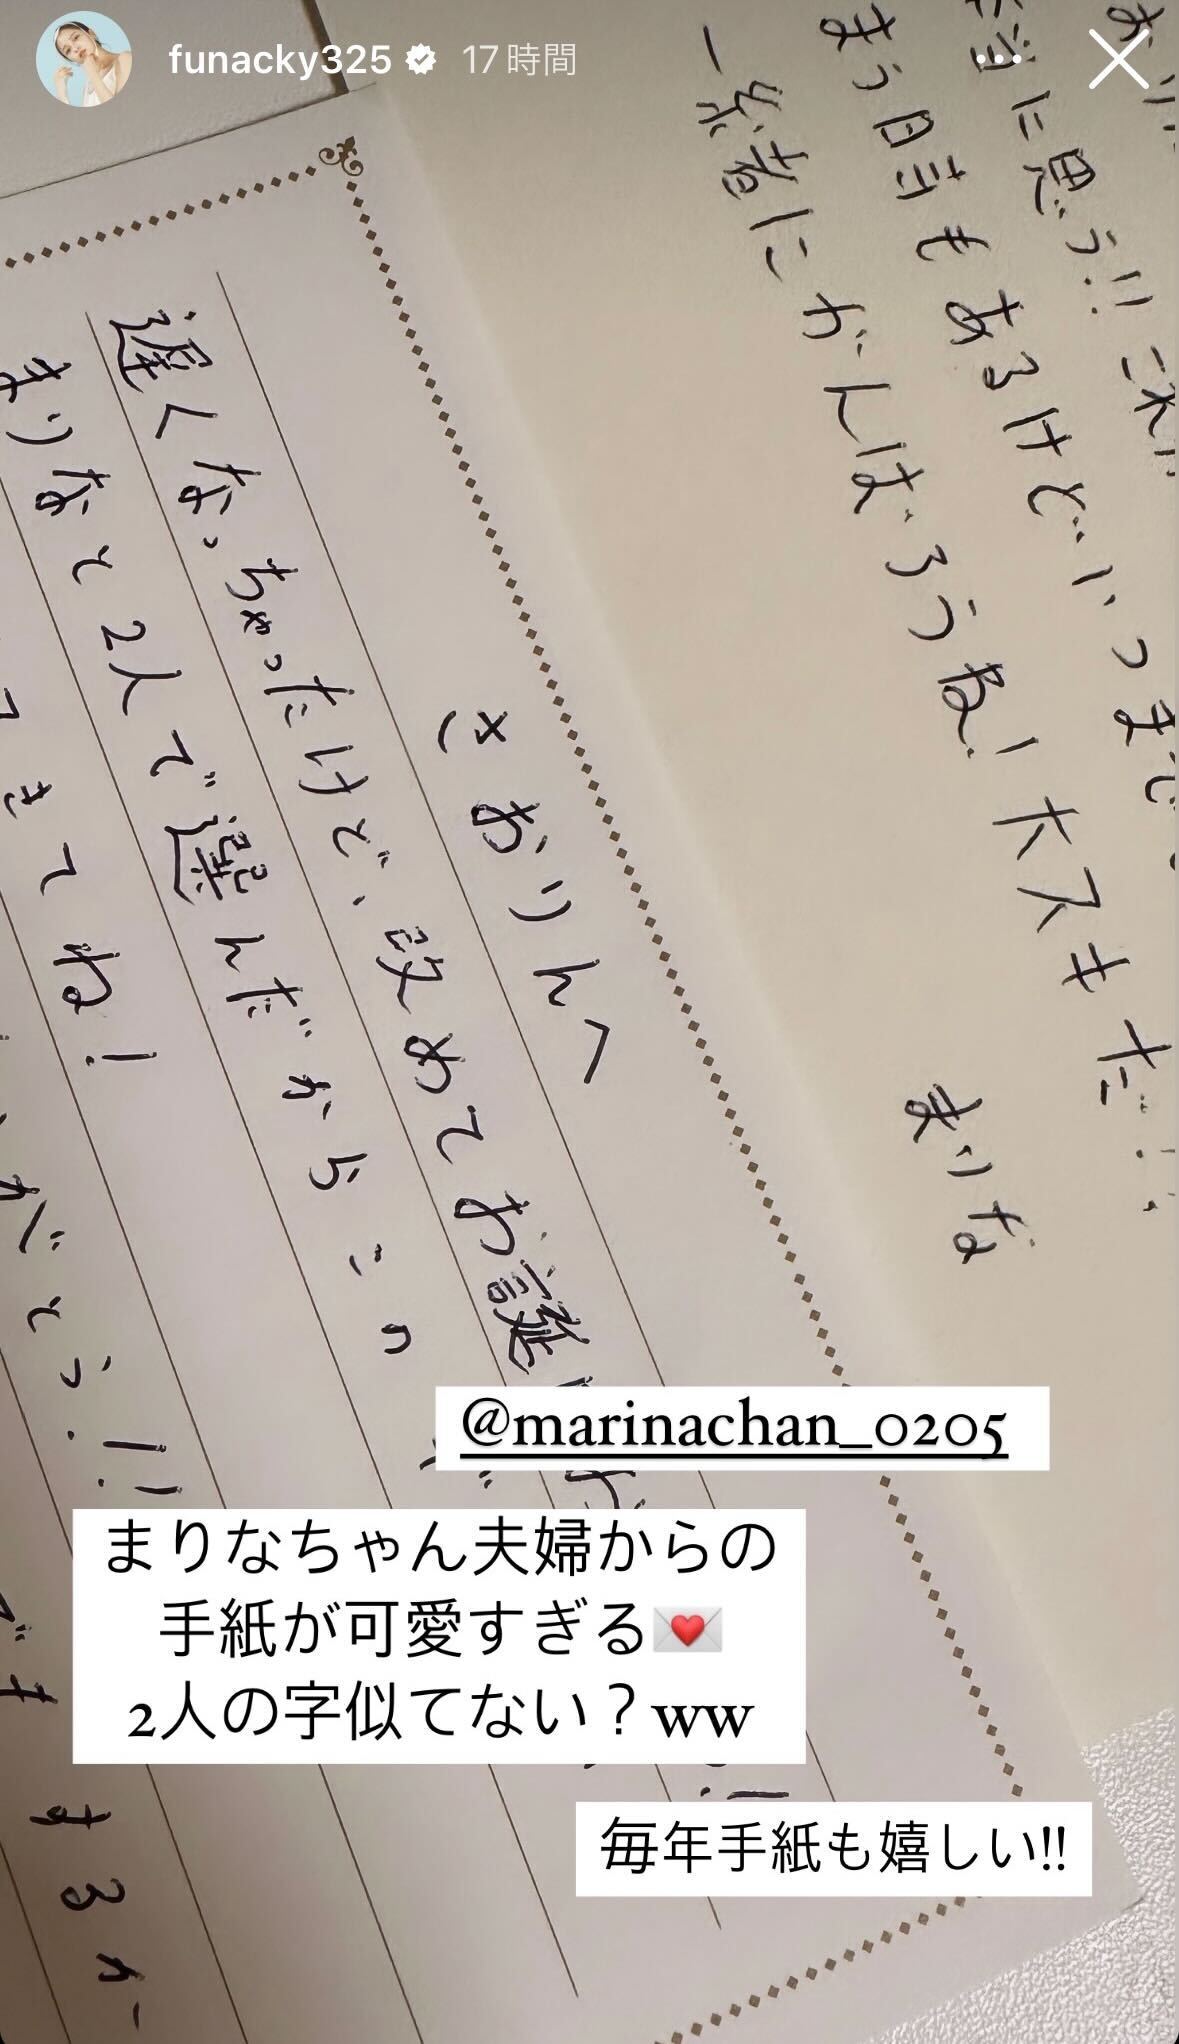 funacky325 17時間
お
に思う!! これ
まう日もあるけどいつまで
一緒にがんばろうね! 大スキだ!!
まりな
さおりんへ
遅くなっちゃったけど、改めてお誕
まりなと2人で選んだからこの
きてね!
がとう!!
するか
@marinachan_0205
まりなちゃん夫婦からの
手紙が可愛すぎる💌
2人の字似てない？ww
毎年手紙も嬉しい!!